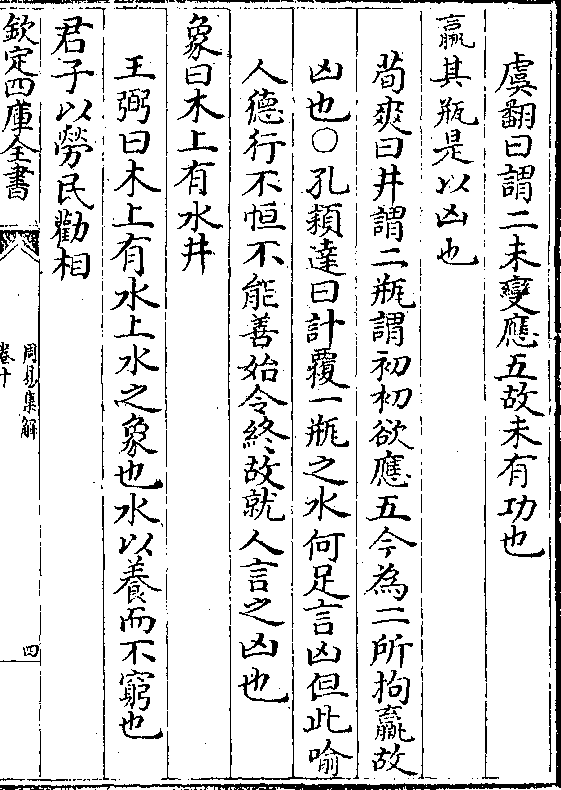 虞翻曰謂二未變應五故未有功也
羸其瓶是以凶也
荀爽曰井謂二瓶謂初初欲應五今為二所拘羸故
凶也○孔穎達曰計覆一瓶之水何足言凶但此喻
人德行不恒不能善始令終故就人言之凶也
象曰木上有水井
王弼曰木上有水上水之象也水以養而不窮也
君子以勞民勸相
欽定四庫全書
周易集解
卷十
四